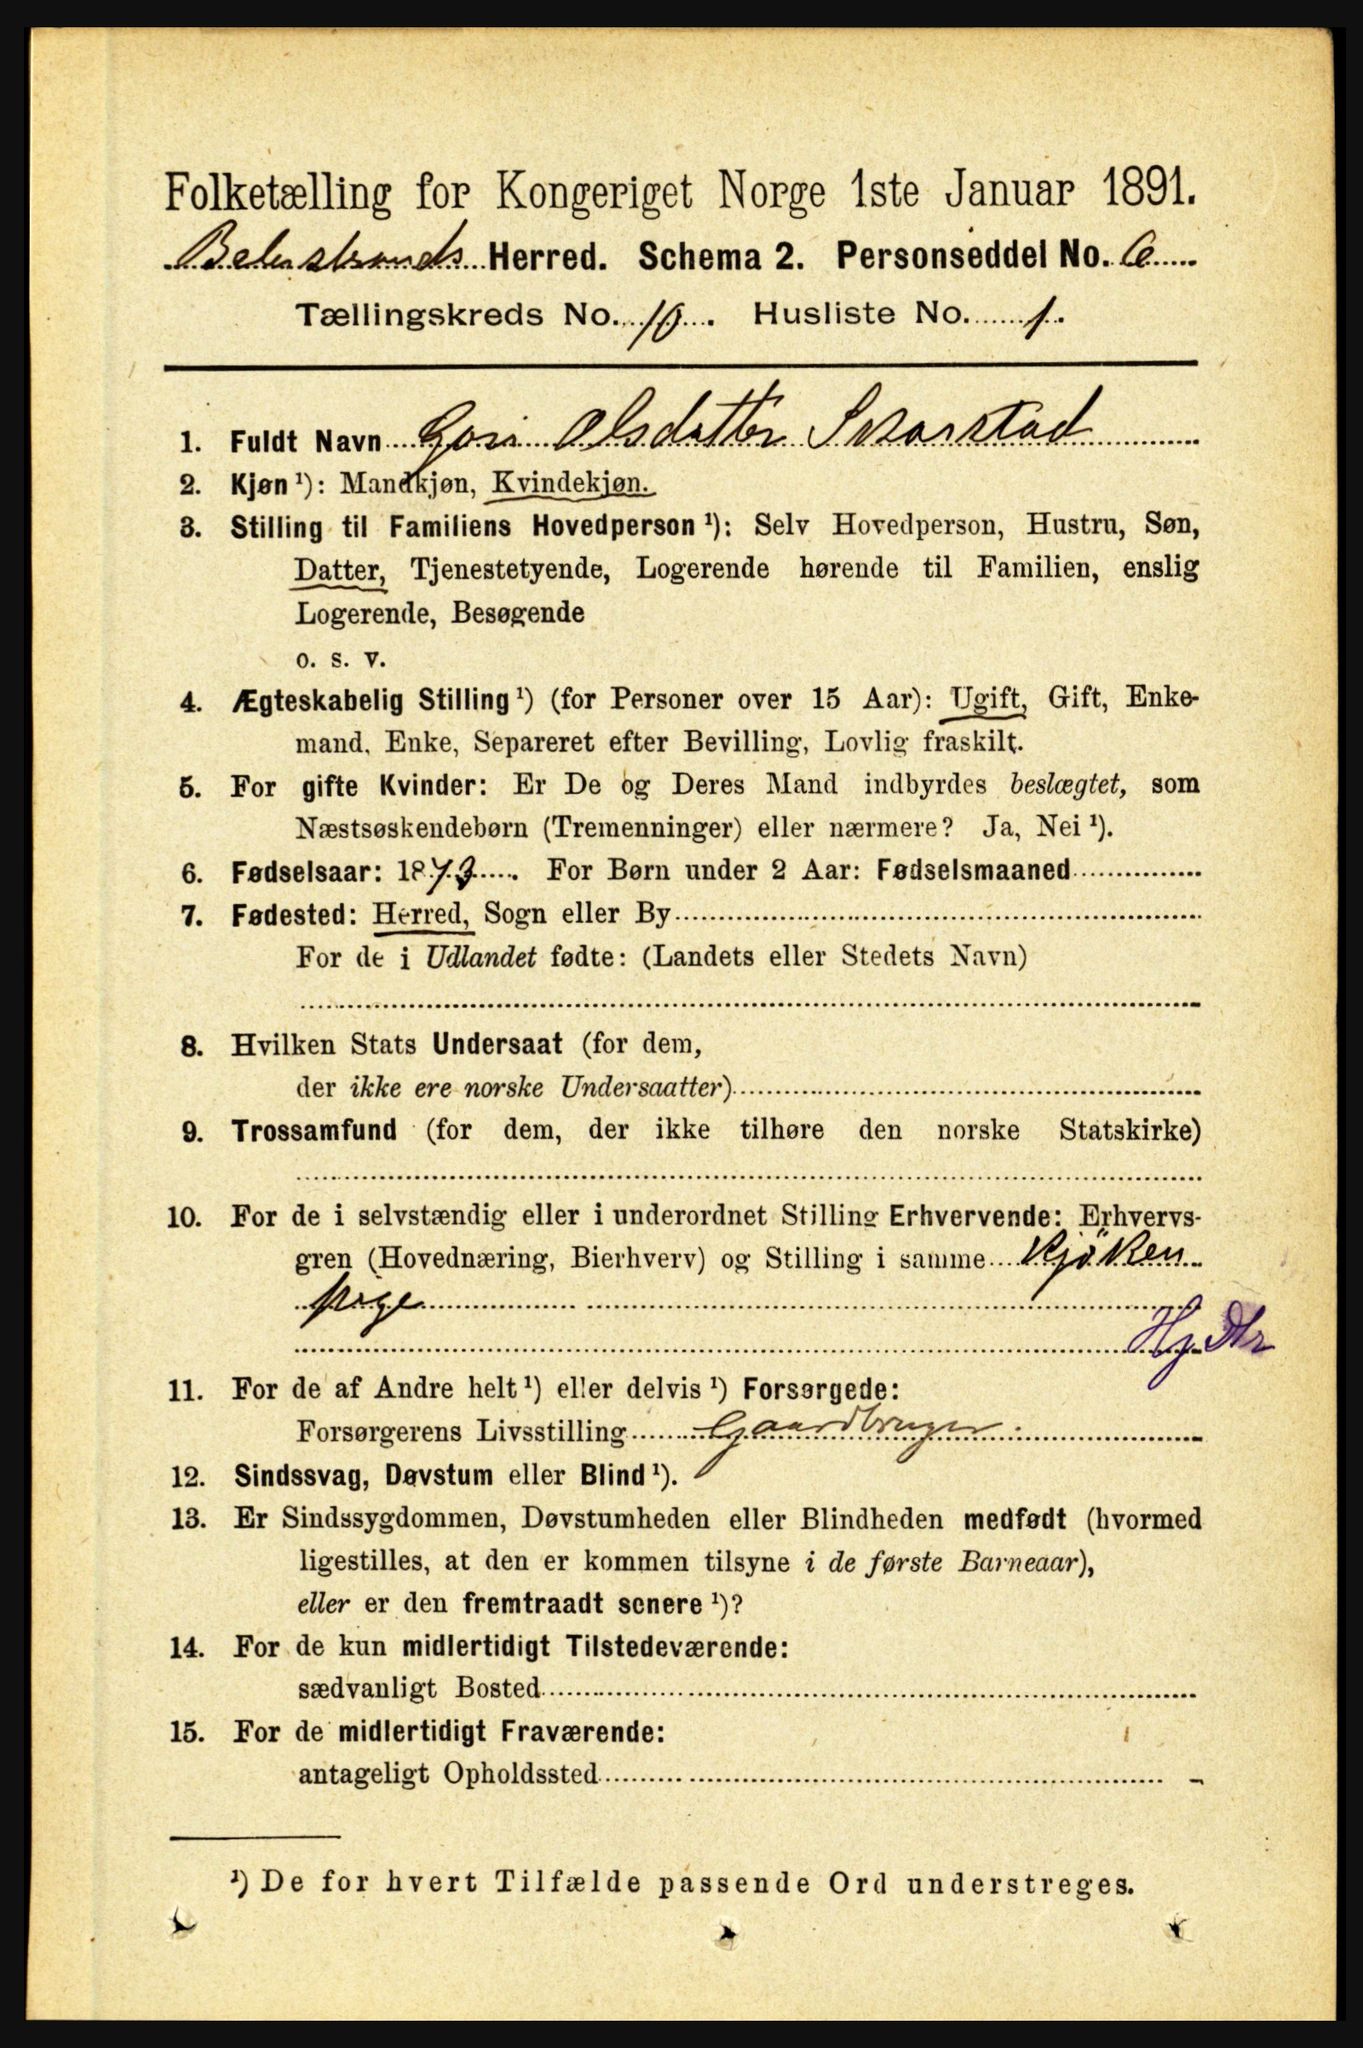 Folketælling for Kongeriget Norge 1ste Januar 1891.
Balestrands Herred. Schema 2. Personseddel No. 6
Tællingskreds No. 10. Husliste No. 1.
1. Fuldt Navn Gori Olsdatter Svarstad
2. Kjøn ¹): Mandkjøn, Kvindekjøn.
3. Stilling til Familiens Hovedperson ¹): Selv Hovedperson, Hustru, Søn,
Datter, Tjenestetyende, Logerende hørende til Familien, enslig
Logerende, Besøgende
o. s. v.
4. Ægteskabelig Stilling ¹) (for Personer over 15 Aar): Ugift, Gift, Enke-
mand, Enke, Separeret efter Bevilling, Lovlig fraskilt.
5. For gifte Kvinder: Er De og Deres Mand indbyrdes beslægtet, som
Næstsøskendebørn (Tremenninger) eller nærmere? Ja, Nei ¹).
6. Fødselsaar: 1873. For Børn under 2 Aar: Fødselsmaaned
7. Fødested: Herred, Sogn eller By
For de i Udlandet fødte: (Landets eller Stedets Navn)
8. Hvilken Stats Undersaat (for dem,
der ikke ere norske Undersaatter)
9. Trossamfund (for dem, der ikke tilhøre den norske Statskirke)
10. For de i selvstændig eller i underordnet Stilling Erhvervende: Erhvervs-
gren (Hovednæring, Bierhverv) og Stilling i samme Kjöken
pige
Hj Dtr
11. For de af Andre helt ¹) eller delvis ¹) Forsørgede:
Forsørgerens Livsstilling Gaardbruger.
12. Sindssvag, Døvstum eller Blind ¹).
13. Er Sindssygdommen, Døvstumheden eller Blindheden medfødt (hvormed
ligestilles, at den er kommen tilsyne i de første Barneaar),
eller er den fremtraadt senere ¹)?
14. For de kun midlertidigt Tilstedeværende:
sædvanligt Bosted
15. For de midlertidigt Fraværende:
antageligt Opholdssted
¹) De for hvert Tilfælde passende Ord understreges.